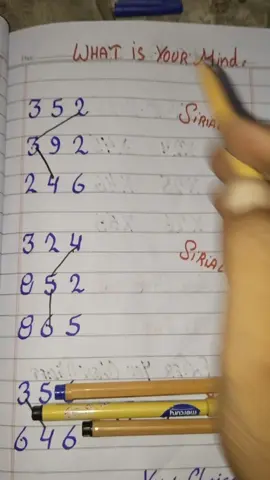 WHAT is YouR Mind.
3 5 2
3 9 2
2 4 6
3 2 4
8 5 2
8 6 5
3 5
6 4 6